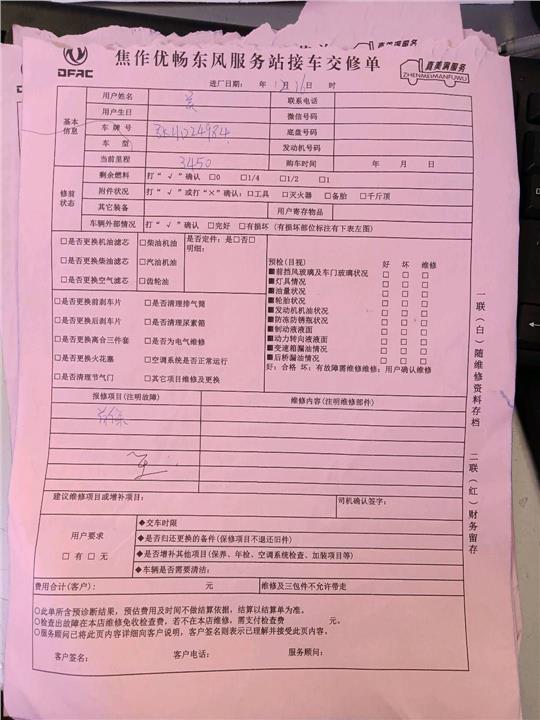 DFAC
焦作优畅东风服务站接车交修单
真美满服务
ZHENMEIMANFUWU
进厂日期： 年 12月26日 时
基本信息
用户姓名 联系电话
用户生日 微信号码
车 牌 号 底盘号码
车 型 发动机号码
当前里程 3450 购车时间 年 月 日
修前状态
剩余燃料 打“√”确认 □0 □1/4 □1/2 □1
附件状况 打“√”或打“×”确认：□工具 □灭火器 □备胎 □千斤顶
其它装备 用户寄存物品
车辆外部情况 打“√”确认 □完好 □有损坏（有损坏部位标注有下表左图）
□是否更换机油滤芯 □柴油机油 是否定件：是□否□
明细：
□是否更换柴油滤芯 □汽油机油
□是否更换空气滤芯 □齿轮油
□是否更换前刹车片 □是否清理排气筒
□是否更换后刹车片 □是否清理尿素箱
□是否更换离合三件套 □是否为电气维修
□是否更换火花塞 □空调系统是否正常运行
□是否清理节气门 □其它项目维修及更换
预检（目视） 好 坏 维修
■前挡风玻璃及车门玻璃状况 □ □ □
■灯具情况 □ □ □
■油量状况 □ □ □
■轮胎状况 □ □ □
■发动机机油状况 □ □ □
■防冻防锈瓶状况 □ □ □
■制动液液面 □ □ □
■动力转向液液面 □ □ □
■变速箱漏油情况 □ □ □
■后桥漏油情况 □ □ □
好：合格 坏：有故障需维修维修：用户确认维修
报修项目（注明故障） 维修内容（注明维修部件）
建议维修项目或增补项目： 司机确认签字：
用户要求
□有 □无
◆交车时限
◆是否归还更换的备件（保修项目不退还旧件）
◆是否增补其他项目（保养、年检、空调系统检查、加装项目等）
◆车辆是否需要清洁：
费用合计（客户）： 元 维修及三包件不允许带走
○此单所含预诊断结果，预估费用及时间不做结算依据，结算以结算单为准。
○检查出故障在本店维修免收检查费，若不在本店维修，需支付检查费 元。
○服务顾问已将此页内容详细向客户说明，客户签名则表示已理解并接受此页内容。
客户签名： 客户电话： 服务顾问：
一联（白）随维修资料存档 二联（红）财务留存